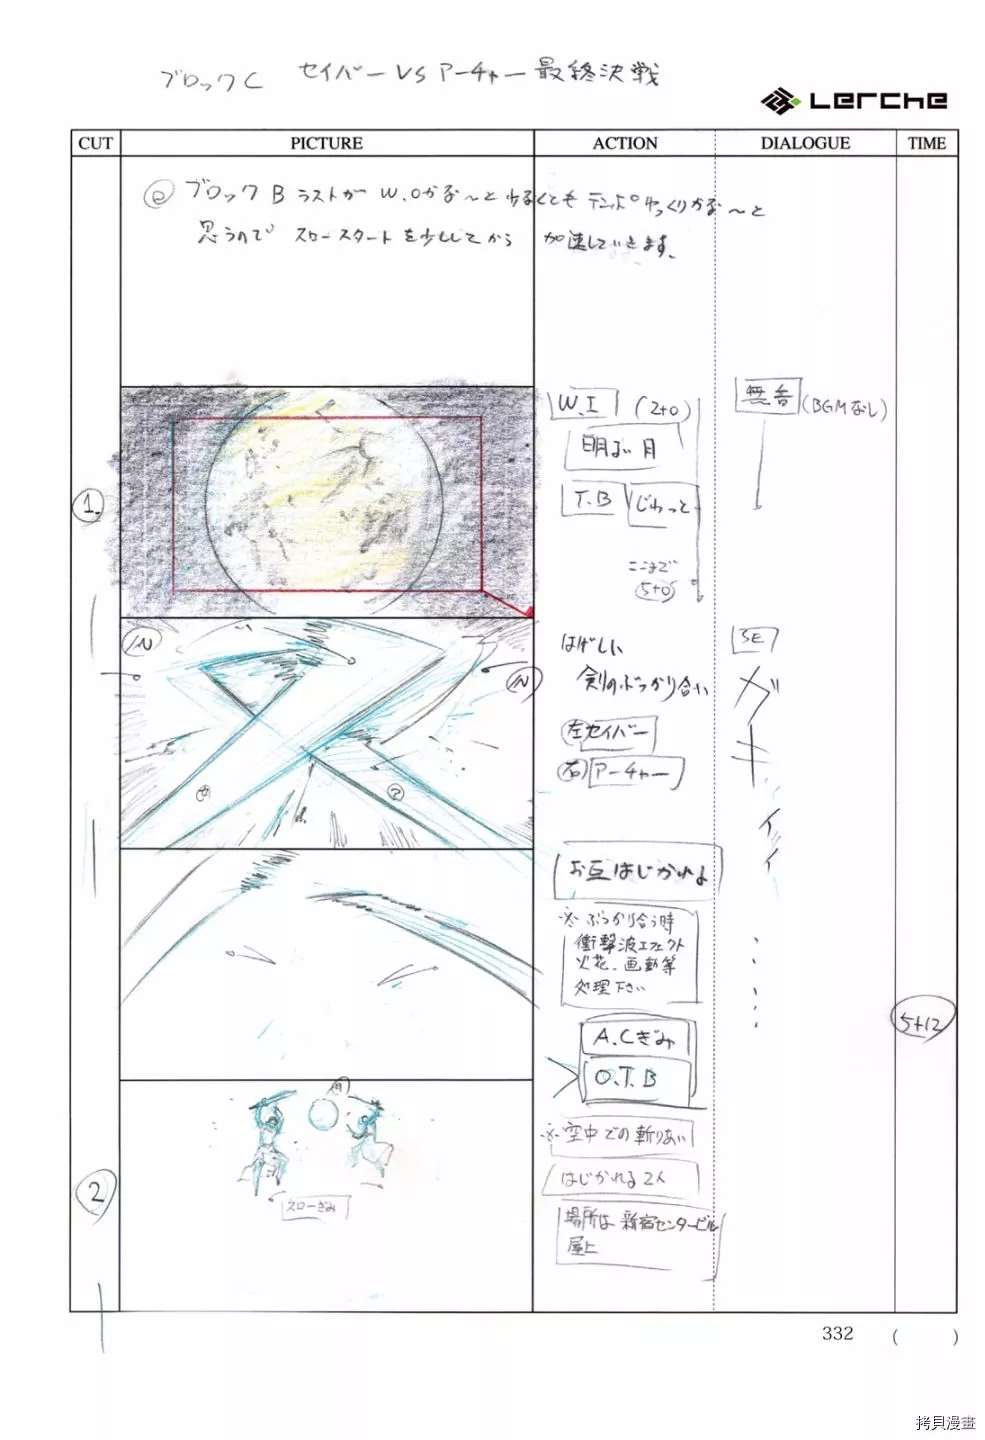 ブロックC セイバー VS アーチャー 最終決戦
Lerche
CUT PICTURE ACTION DIALOGUE TIME
ブロック B ラストが W.Oかな〜と 少なくとも テンポゆっくりかな〜と
思うので スロースタートを少ししてから 加速していきます。
1.
W.I (2+0)
明るい月
T.B じわっと
ここまで
5+0
無音 (BGMなし)
IN
IN
はげしい
剣のぶつかり合い
左 セイバー
右 アーチャー
SE
ガ
キ
イ
イ
お互はじかれる
※ぶつかり合う時
衝撃波エフェクト
火花、画動等
処理下さい
A.Cぎみ
O.T.B
5+12
2
月
スローぎみ
※空中での斬りあい
はじかれる2人
場所は新宿センタービル
屋上
332 ( )
拷貝漫畫